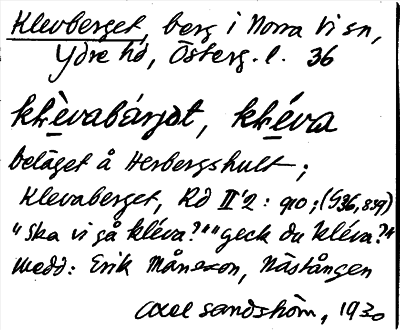 Klevberget, berg i Norra Vi sn,
Ydre hd, Österg. l. 36
klèvabárjət, kléva
beläget å Herbergshult;
Klevaberget, Rd II'2: 910; (G36, 859)
"Ska vi gå kléva?" "geck du kléva?"
medd: Erik Månsson, Näståmgen
Axel Sandström, 1930